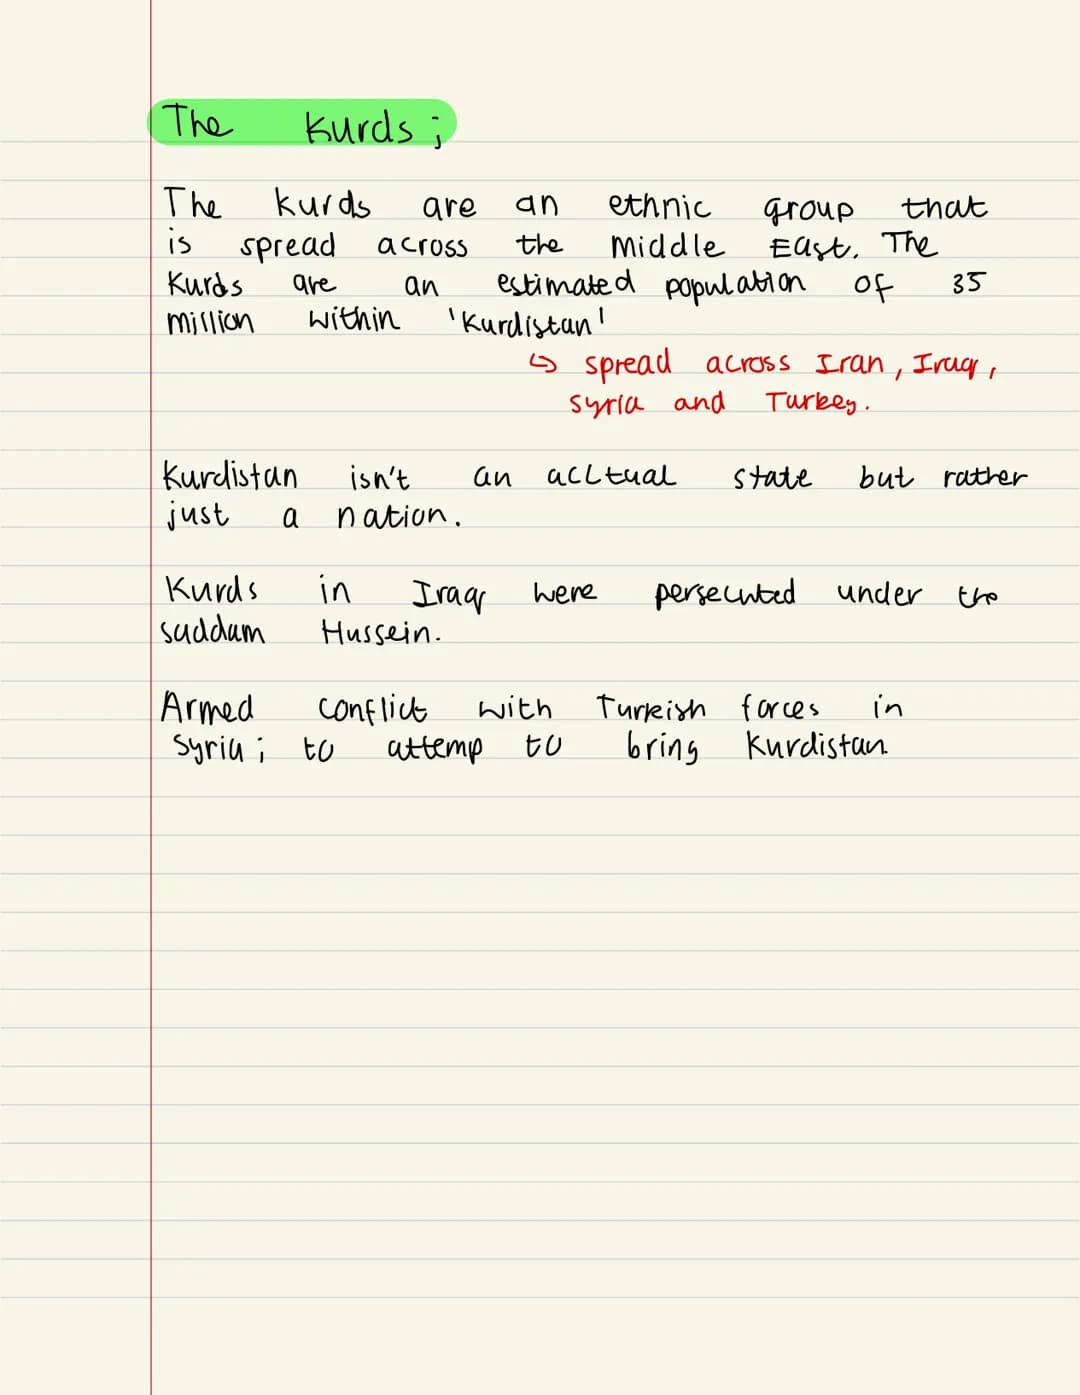 The Kurds ;
The Kurds are an ethnic group that
is spread across the Middle East. The
Kurds are an estimated population of 35
million within 'Kurdistan'
↳ spread across Iran, Iraq,
Syria and Turkey.
Kurdistan isn't an acctual state but rather
just a nation.
Kurds in Iraq were persecuted under the
Saddam Hussein.
Armed conflict with Turkish forces in
Syria ; to attemp to bring Kurdistan